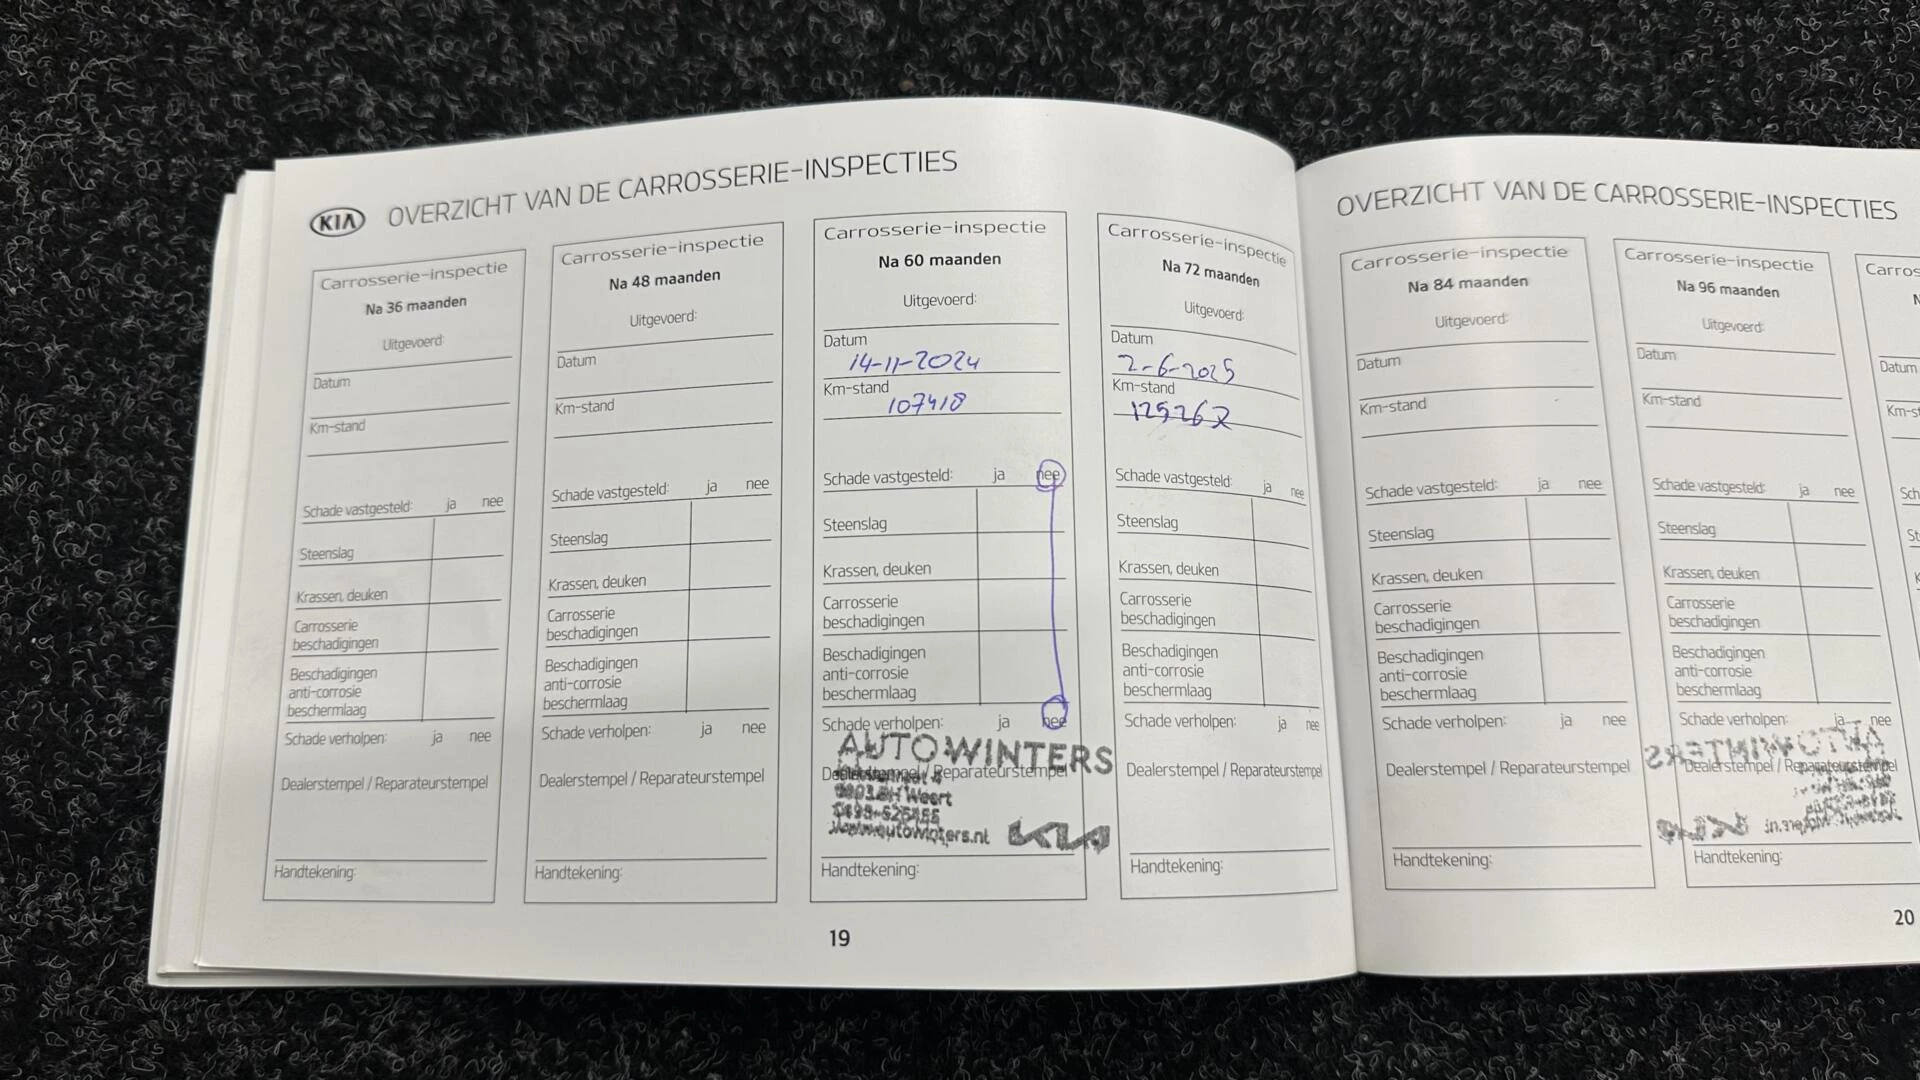 KIA OVERZICHT VAN DE CARROSSERIE-INSPECTIES
Carrosserie-inspectie
Na 36 maanden
Uitgevoerd:
Datum
Km-stand
Schade vastgesteld: ja nee
Steenslag
Krassen, deuken
Carrosserie
beschadigingen
Beschadigingen
anti-corrosie
beschermlaag
Schade verholpen: ja nee
Dealerstempel / Reparateurstempel
Handtekening:
Carrosserie-inspectie
Na 48 maanden
Uitgevoerd:
Datum
Km-stand
Schade vastgesteld: ja nee
Steenslag
Krassen, deuken
Carrosserie
beschadigingen
Beschadigingen
anti-corrosie
beschermlaag
Schade verholpen: ja nee
Dealerstempel / Reparateurstempel
Handtekening:
Carrosserie-inspectie
Na 60 maanden
Uitgevoerd:
Datum
14-11-2024
Km-stand
107418
Schade vastgesteld: ja nee
Steenslag
Krassen, deuken
Carrosserie
beschadigingen
Beschadigingen
anti-corrosie
beschermlaag
Schade verholpen: ja nee
AUTO WINTERS
Dealerstempel / Reparateurstempel
Weert
www.autowinters.nl KIA
Handtekening:
Carrosserie-inspectie
Na 72 maanden
Uitgevoerd:
Datum
2-6-2025
Km-stand
125262
Schade vastgesteld: ja nee
Steenslag
Krassen, deuken
Carrosserie
beschadigingen
Beschadigingen
anti-corrosie
beschermlaag
Schade verholpen: ja nee
Dealerstempel / Reparateurstempel
Handtekening:
19
OVERZICHT VAN DE CARROSSERIE-INSPECTIES
Carrosserie-inspectie
Na 84 maanden
Uitgevoerd:
Datum
Km-stand
Schade vastgesteld: ja nee
Steenslag
Krassen, deuken
Carrosserie
beschadigingen
Beschadigingen
anti-corrosie
beschermlaag
Schade verholpen: ja nee
Dealerstempel / Reparateurstempel
Handtekening:
Carrosserie-inspectie
Na 96 maanden
Uitgevoerd:
Datum
Km-stand
Schade vastgesteld: ja nee
Steenslag
Krassen, deuken
Carrosserie
beschadigingen
Beschadigingen
anti-corrosie
beschermlaag
Schade verholpen: ja nee
AUTO WINTERS
Dealerstempel / Reparateurstempel
KIA
Handtekening:
Carros
Datum
Km-st
20